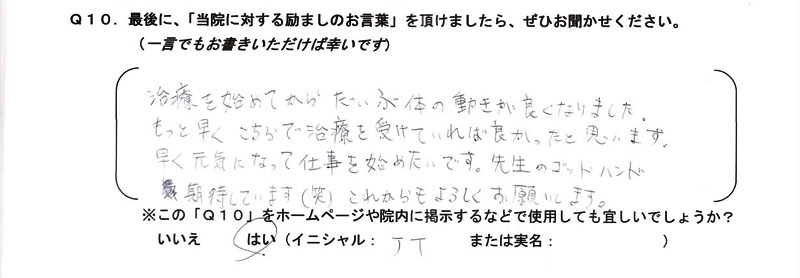 Q10．最後に、「当院に対する励ましのお言葉」を頂けましたら、ぜひお聞かせください。
（一言でもお書きいただけば幸いです）
治療を始めてから だいぶ体の動きが良くなりました。
もっと早く こちらで治療を受けていれば良かったと思います。
早く元気になって仕事を始めたいです。先生のゴッドハンド
期待しています(笑) これからもよろしくお願いします。
※この「Q10」をホームページや院内に掲示するなどで使用しても宜しいでしょうか？
いいえ はい（イニシャル： JT または実名： ）